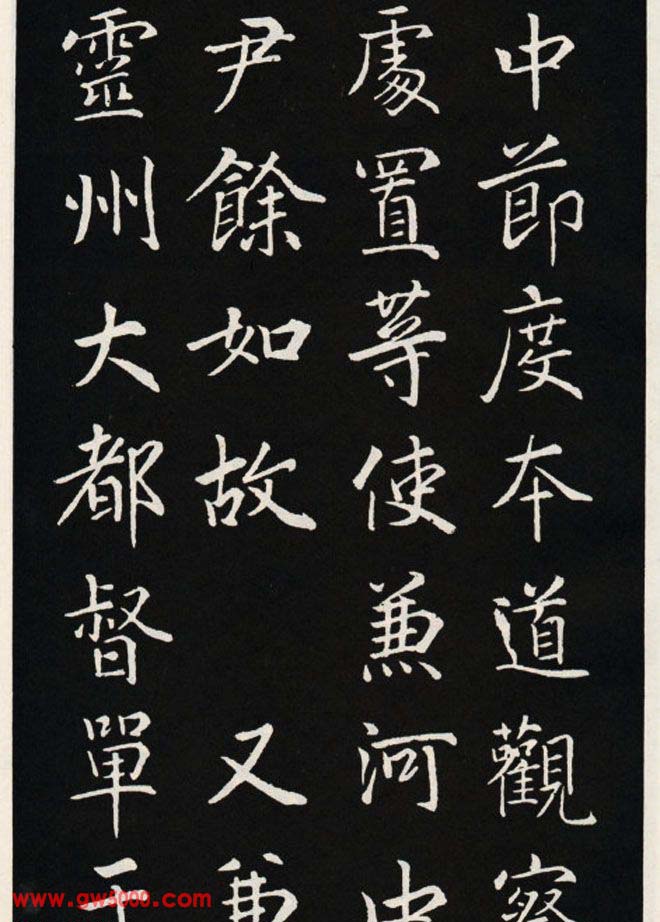 中節度本道觀察
處置等使兼河中
尹餘如故 又兼
靈州大都督單于
www.gw5000.com